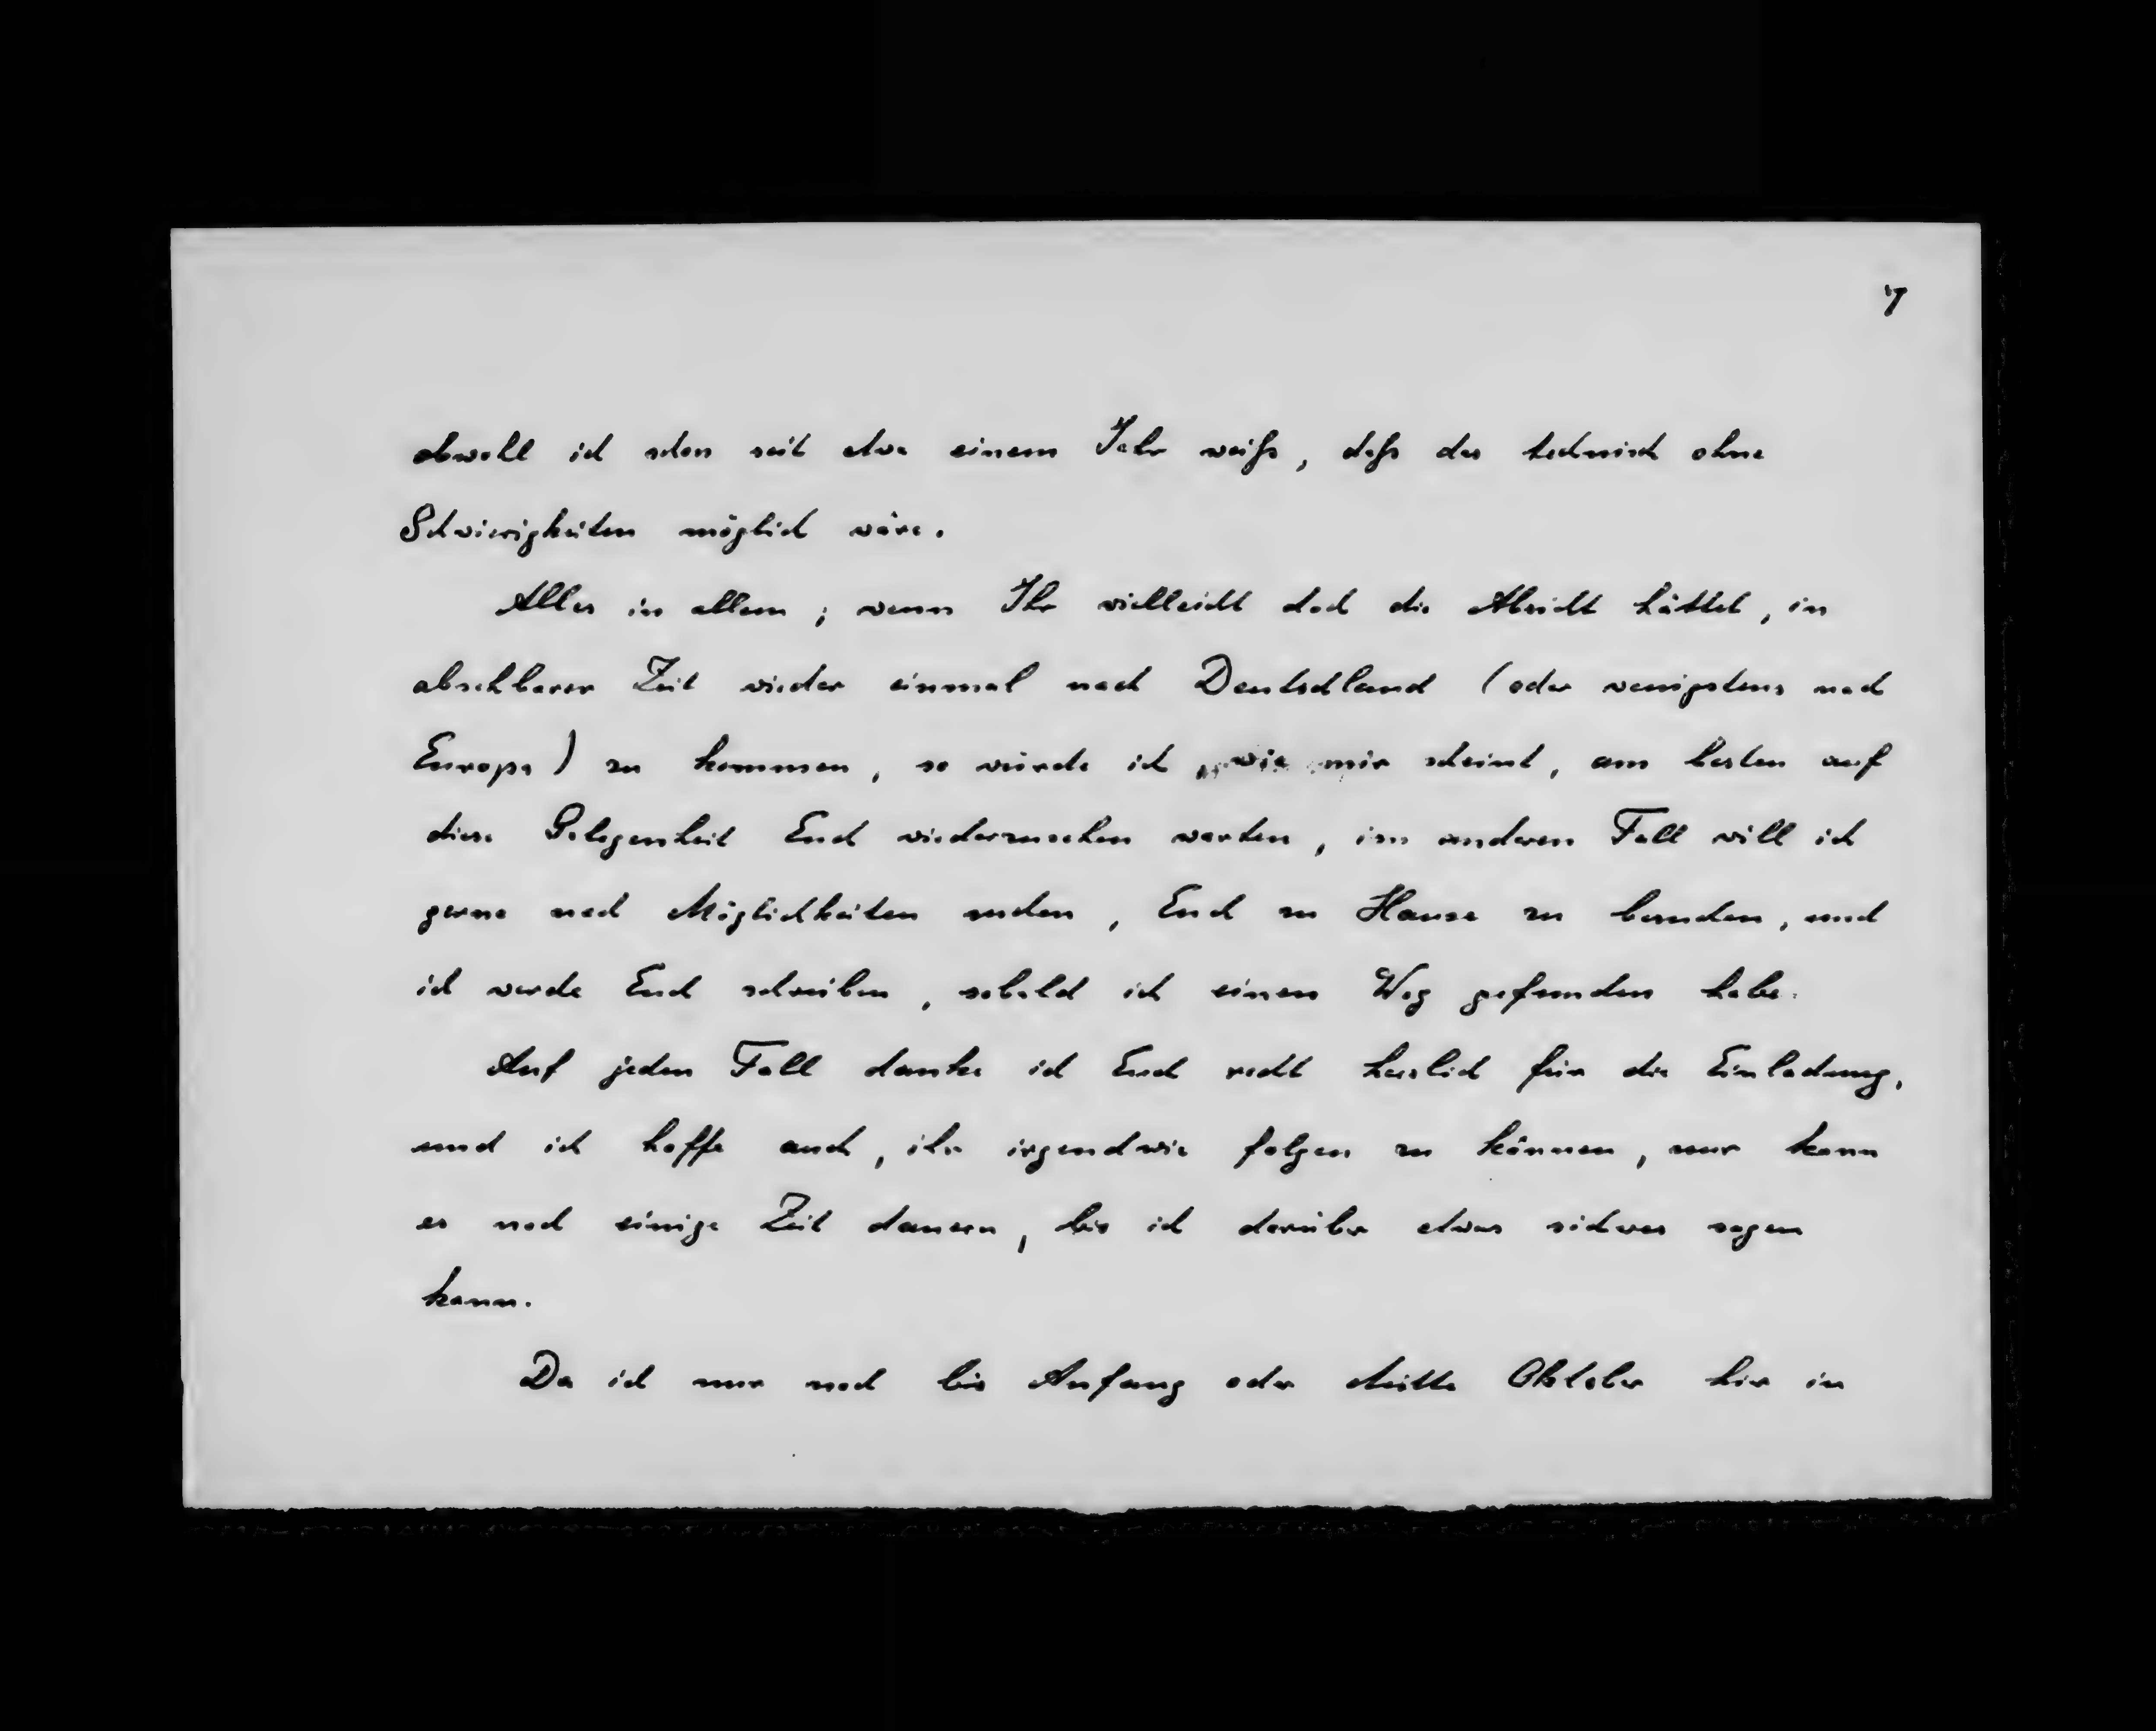 7
obwohl ich schon seit etwa einem Jahr weiß, daß das technisch ohne
Schwierigkeiten möglich wäre.
Alles in allem; wenn Ihr vielleicht doch die Absicht hättet, in
absehbarer Zeit wieder einmal nach Deutschland (oder wenigstens nach
Europa) zu kommen, so würde ich, wie mir scheint, am besten auf
diese Gelegenheit Euch wiederzusehen warten, im anderen Fall will ich
gerne nach Möglichkeiten suchen, Euch zu Hause zu besuchen, und
ich werde Euch schreiben, sobald ich einen Weg gefunden habe.
Auf jeden Fall danke ich Euch recht herzlich für die Einladung,
und ich hoffe auch, ihr irgendwie folgen zu können, nur kann
es noch einige Zeit dauern, bis ich darüber etwas sicheres sagen
kann.
Da ich nur noch bis Anfang oder Mitte Oktober hier in